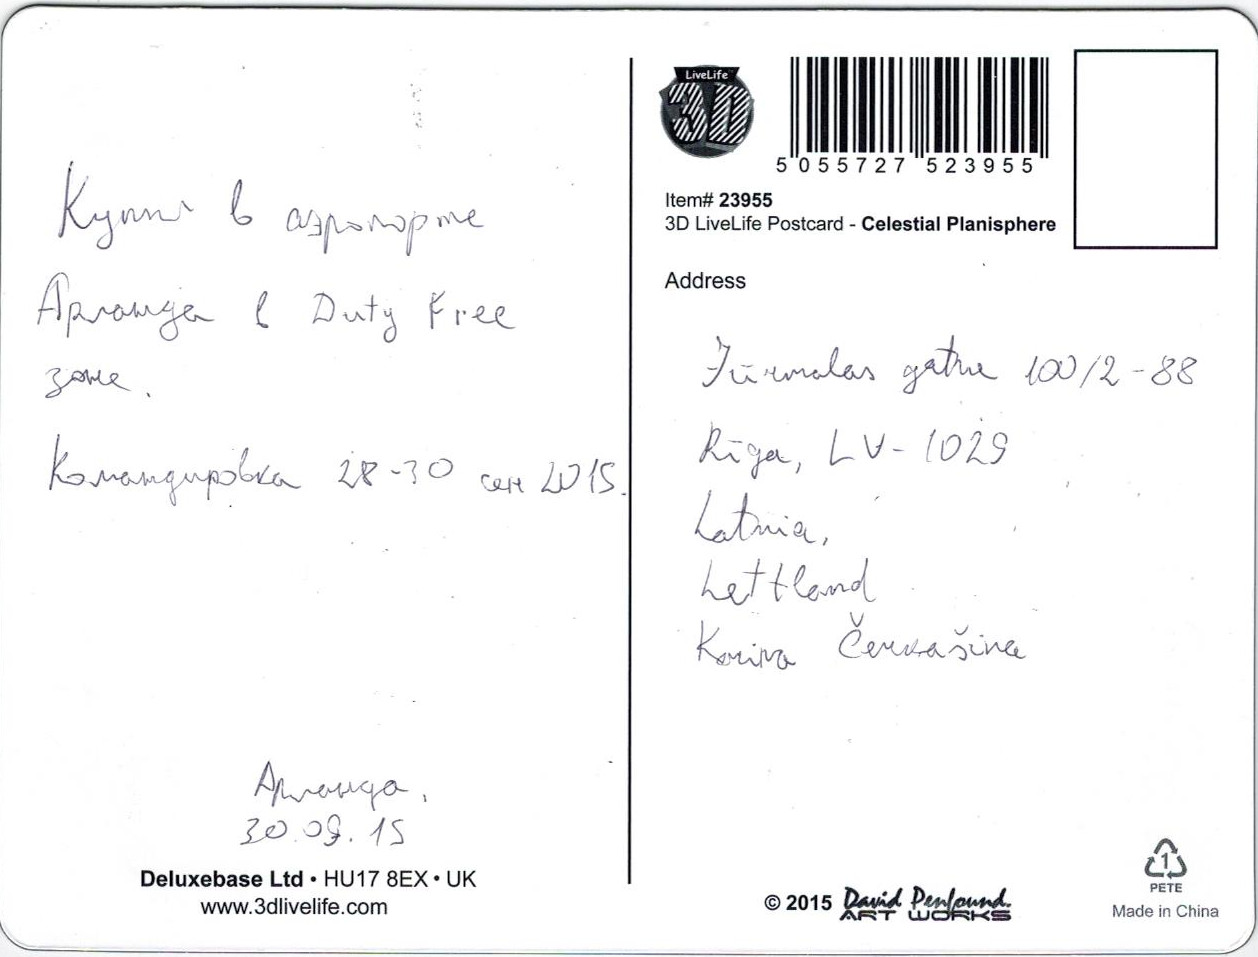 Купил в аэропорте
Арланда в Duty Free
зоне.
Командировка 28-30 сен 2015.
Арланда,
30.09.15
Deluxebase Ltd • HU17 8EX • UK
www.3dlivelife.com
LiveLife
3D
5 055727 523955
Item# 23955
3D LiveLife Postcard - Celestial Planisphere
Address
Jūrmalas gatve 100/2-88
Rīga, LV-1029
Latvia,
Lettland
Karina Čerkašina
© 2015 David Penfound.
ART WORKS
1
PETE
Made in China